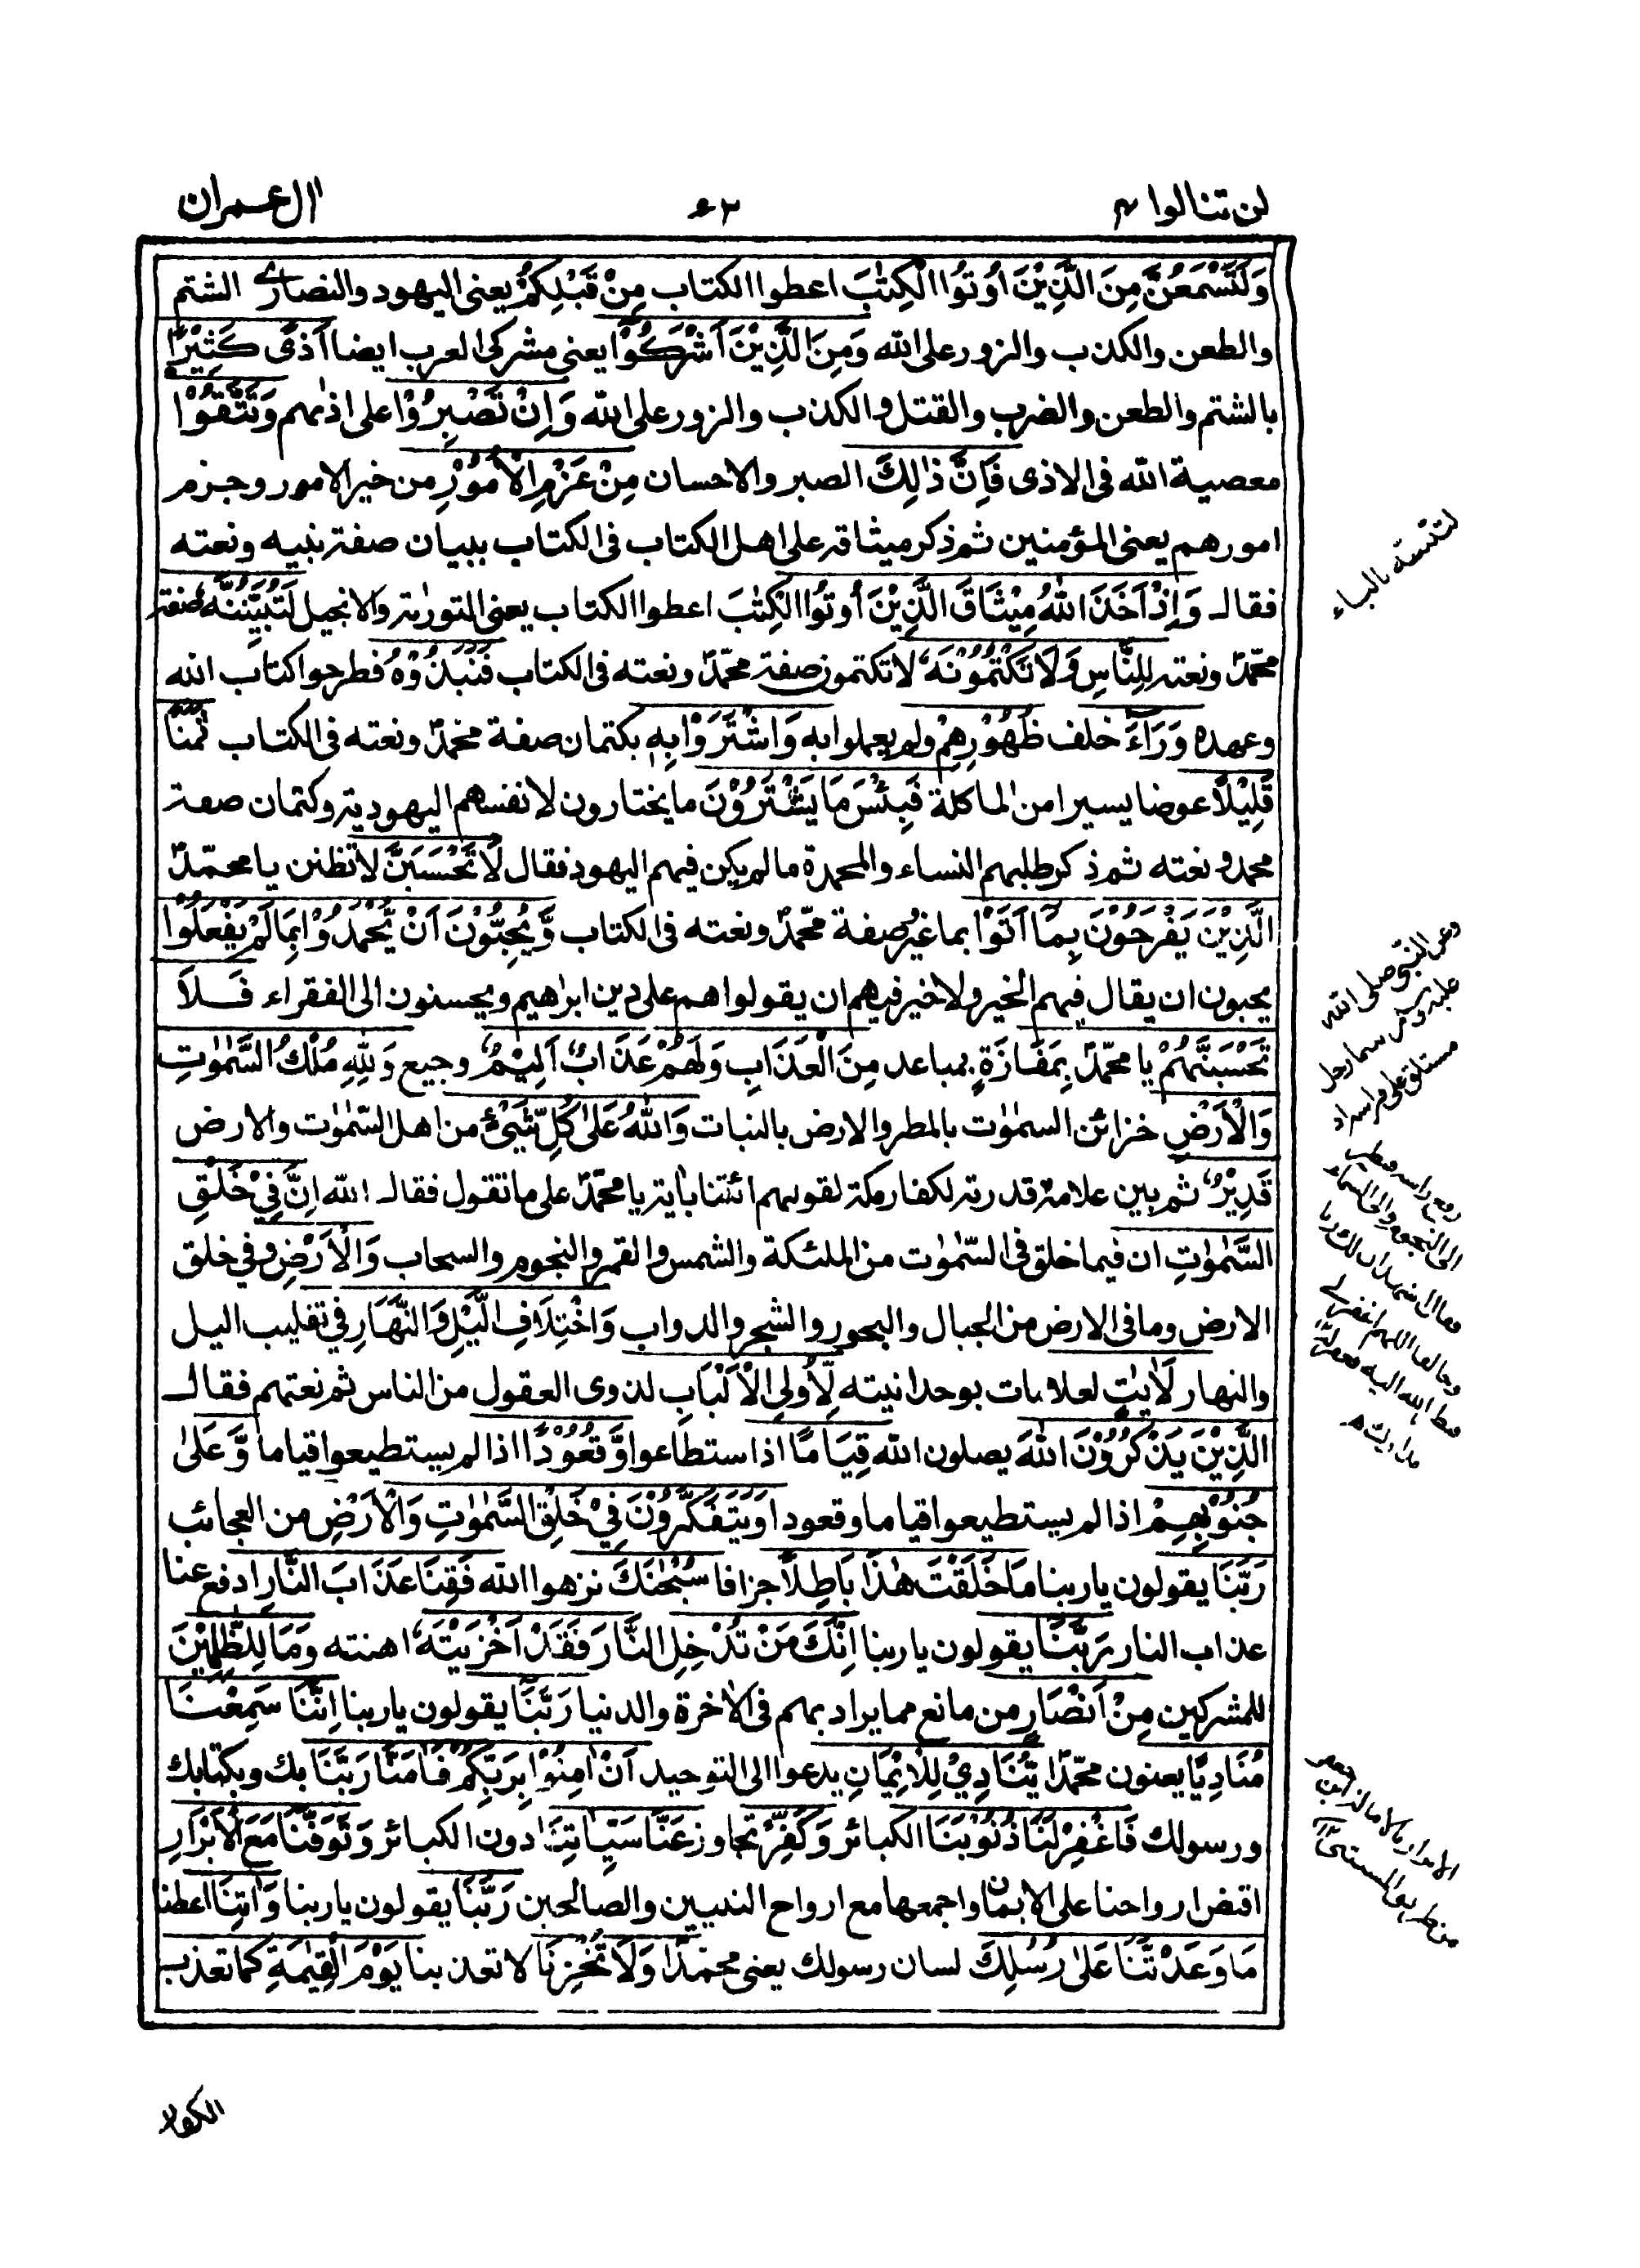 لن تنالوا ۴
ال عمران
وَلَتَسْمَعُنَّ مِنَ الَّذِيْنَ اُوتُوا الْكِتٰبَ اعطوا الكتاب مِنْ قَبْلِكُمْ يعنى اليهود والنصارى الشتم
والطعن والكذب والزور على الله وَمِنَ الَّذِيْنَ اَشْرَكُوْا يعنى مشركى العرب ايضا اَذًى كَثِيْرًا
بالشتم والطعن والضرب والقتل والكذب والزور على الله وَاِنْ تَصْبِرُوْا على اذٰىهم وَتَتَّقُوْا
معصية الله فى الاذى فَاِنَّ ذٰلِكَ الصبر والاحسان مِنْ عَزْمِ الْاُمُوْرِ من خير الامور وجزم
امورهم يعنى المؤمنين ثم ذكر ميثاقه على اهل الكتاب فى الكتاب ببيان صفة نبيه ونعته
فقال وَاِذْ اَخَذَ اللّٰهُ مِيْثَاقَ الَّذِيْنَ اُوتُوا الْكِتٰبَ اعطوا الكتاب يعنى التورٰية والانجيل لَتُبَيِّنُنَّهٗ صفة
محمّدٍ ونعته لِلنَّاسِ وَلَا تَكْتُمُوْنَهٗ لا تكتمون صفة محمّدٍ ونعته فى الكتاب فَنَبَذُوْهُ فطرحوا كتاب الله
وعهده وَرَآءَ خلف ظُهُوْرِهِمْ ولم يعملوا به وَاشْتَرَوْا بِهٖ بكتمان صفة محمّدٍ ونعته فى الكتاب ثَمَنًا
قَلِيْلًا عوضا يسيرا من الماكلة فَبِئْسَ مَا يَشْتَرُوْنَ ما يختارون لانفسهم اليهودية وكتمان صفة
محمد ونعته ثم ذكر طلبهم النساء والمحمدة ما لم يكن فيهم اليهود فقال لَا تَحْسَبَنَّ لا تظنن يا محمّدٍ
الَّذِيْنَ يَفْرَحُوْنَ بِمَآ اَتَوْا بما غير صفة محمّدٍ ونعته فى الكتاب وَّيُحِبُّوْنَ اَنْ يُّحْمَدُوْا بِمَا لَمْ يَفْعَلُوْا
يحبون ان يقال فيهم الخير ولا خير فيهم ان يقولوا هم على دين ابراهيم ويحسنون الى الفقراء فَلَا
تَحْسَبَنَّهُمْ يا محمّدٍ بِمَفَازَةٍ بمباعد مِنَ الْعَذَابِ وَلَهُمْ عَذَابٌ اَلِيْمٌ وجيع وَلِلّٰهِ مُلْكُ السَّمٰوٰتِ
وَالْاَرْضِ خزائن السمٰوٰت بالمطر والارض بالنبات وَاللّٰهُ عَلٰى كُلِّ شَيْءٍ من اهل السّمٰوٰت والارض
قَدِيْرٌ ثم بين علامة قدرته لكفار مكة لقولهم ائتنا باٰية يا محمّدٍ على ما تقول فقال الله اِنَّ فِيْ خَلْقِ
السَّمٰوٰتِ ان فيما خلق فى السّمٰوٰت من الملئكة والشمس والقمر والنجوم والسحاب وَالْاَرْضِ وفي خلق
الارض وما فى الارض من الجبال والبحور والشجر والدواب وَاخْتِلَافِ الَّيْلِ وَالنَّهَارِ في تقليب اليل
والنهار لَاٰيٰتٍ لعلامات بوحدانيته لِّاُولِي الْاَلْبَابِ لذوى العقول من الناس ثم نعتهم فقال
الَّذِيْنَ يَذْكُرُوْنَ اللّٰهَ يصلون الله قِيَامًا اذا ستطاعوا وَّقُعُوْدًا اذا لم يستطيعوا قياما وَّعَلٰى
جُنُوْبِهِمْ اذا لم يستطيعوا قياما وقعودا وَيَتَفَكَّرُوْنَ فِيْ خَلْقِ السَّمٰوٰتِ وَالْاَرْضِ من العجائب
رَبَّنَا يقولون يا ربنا مَا خَلَقْتَ هٰذَا بَاطِلًا جزافا سُبْحٰنَكَ نزهوا الله فَقِنَا عَذَابَ النَّارِ ادفع عنا
عذاب النار رَبَّنَآ يقولون يا ربنا اِنَّكَ مَنْ تُدْخِلِ النَّارَ فَقَدْ اَخْزَيْتَهٗ اهنته وَمَا لِلظّٰلِمِيْنَ
للمشركين مِنْ اَنْصَارٍ من مانع مما يراد بهم فى الاٰخرة والدنيا رَبَّنَآ يقولون يا ربنا اِنَّنَا سَمِعْنَا
مُنَادِيًا يعنون محمّدًا يُّنَادِيْ لِلْاِيْمَانِ يدعوا الى التوحيد اَنْ اٰمِنُوْا بِرَبِّكُمْ فَاٰمَنَّا رَبَّنَا بك وبكتابك
ورسولك فَاغْفِرْ لَنَا ذُنُوْبَنَا الكبائر وَكَفِّرْ تجاوز عَنَّا سَيِّاٰتِنَا دون الكبائر وَتَوَفَّنَا مَعَ الْاَبْرَارِ
اقبض ارواحنا على الايمان واجمعها مع ارواح النبيين والصالحين رَبَّنَا يقولون يا ربنا وَاٰتِنَا اعطنا
مَا وَعَدْتَّنَا عَلٰى رُسُلِكَ لسان رسولك يعنى محمّدًا وَلَا تُخْزِنَا لا تعذبنا يَوْمَ الْقِيٰمَةِ كما تعذب